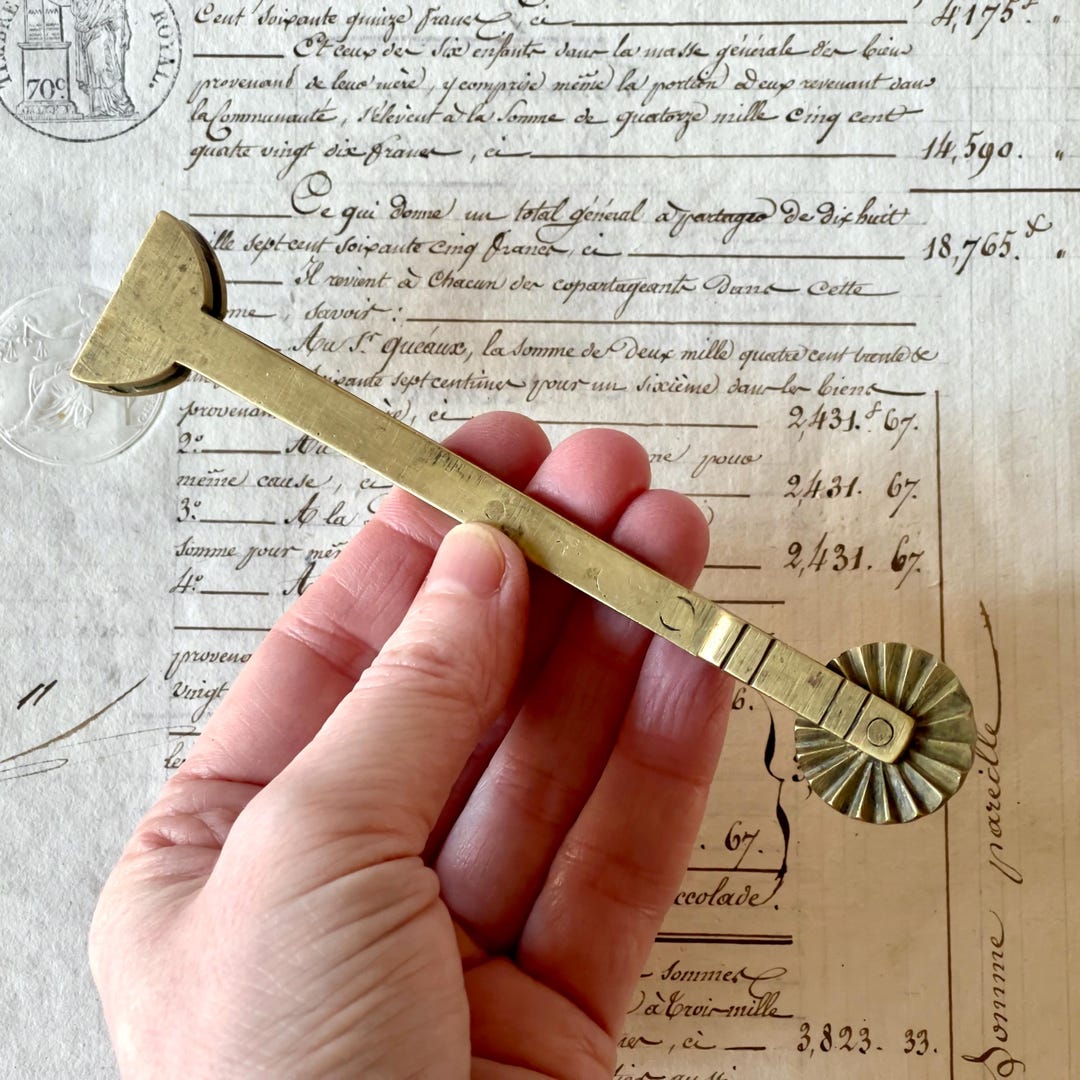 TIMBRE ROYAL.
70c
Cent soixante quinze francs, ci 4,175.f "
Et ceux des six enfants dans la masse générale des biens
provenans de leur mère, y compris même la portion à eux revenant dans
la Communauté, s'élèvent à la somme de quatorze mille cinq cent
quatre vingt dix francs, ci 14,590. "
Ce qui donne un total général à partager de dix huit
mille sept cent soixante cinq francs, ci 18,765.f "
Il revient à chacun des copartageants dans cette
somme, savoir:
Au Sr. Quéaux, la somme de deux mille quatre cent trente
soixante sept centimes pour un sixième dans les biens
provenan ci 2,431.f 67.
2.o Au me pour
même cause, ci 2,431. 67.
3.o A la
somme pour mêm 2,431. 67.
4.o A
proveno 6.
vingt
le
67.
ccolade.
sommes
à trois mille
ci 3,823. 33.
Somme pareille